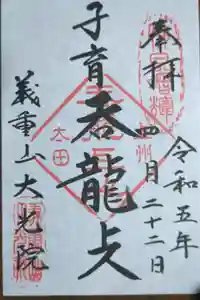 奉拝
令和五年
四月二十二日
子育呑龍上人
義重山大光院
太田